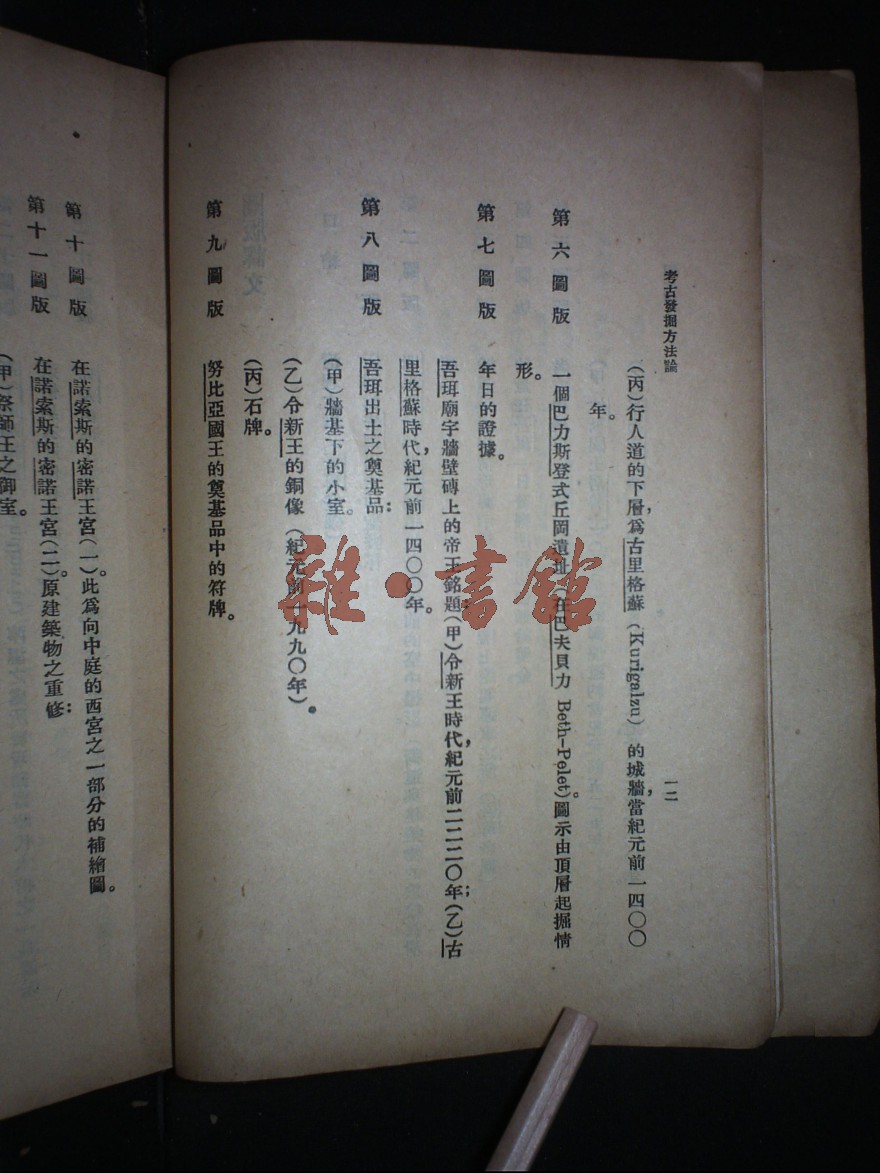 考古發掘方法論 一二
(丙)行人道的下層,爲古里格蘇(Kurigalzu)的城牆,當紀元前一四〇〇
年。
第六圖版 一個巴力斯登式丘岡遺址(在巴夫貝力 Beth-Pelet)。圖示由頂層起掘情
形。
第七圖版 年日的證據。
吾珥廟宇牆壁磚上的帝王銘題:(甲)令新王時代,紀元前二二二〇年;(乙)古
里格蘇時代,紀元前一四〇〇年。
第八圖版 吾珥出土之奠基品:
(甲)牆基下的小室。
(乙)令新王的銅像(紀元前一九九〇年)。
(丙)石牌。
第九圖版 努比亞國王的奠基品中的符牌。
第十圖版 在諾索斯的密諾王宮(一)。此爲向中庭的西宮之一部分的補繪圖。
第十一圖版 在諾索斯的密諾王宮(二)。原建築物之重修:
(甲)祭師王之御室。
雜·書館